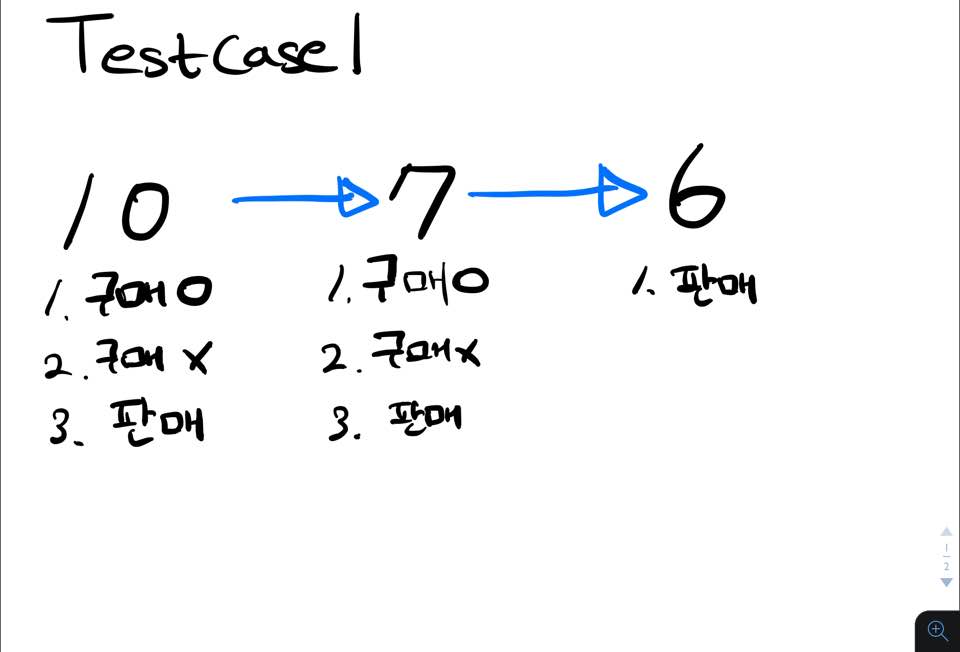 Testcase1
10 → 7 → 6
1. 구매O 1. 구매O 1. 판매
2. 구매 X 2. 구매X
3. 판매 3. 판매
1
2